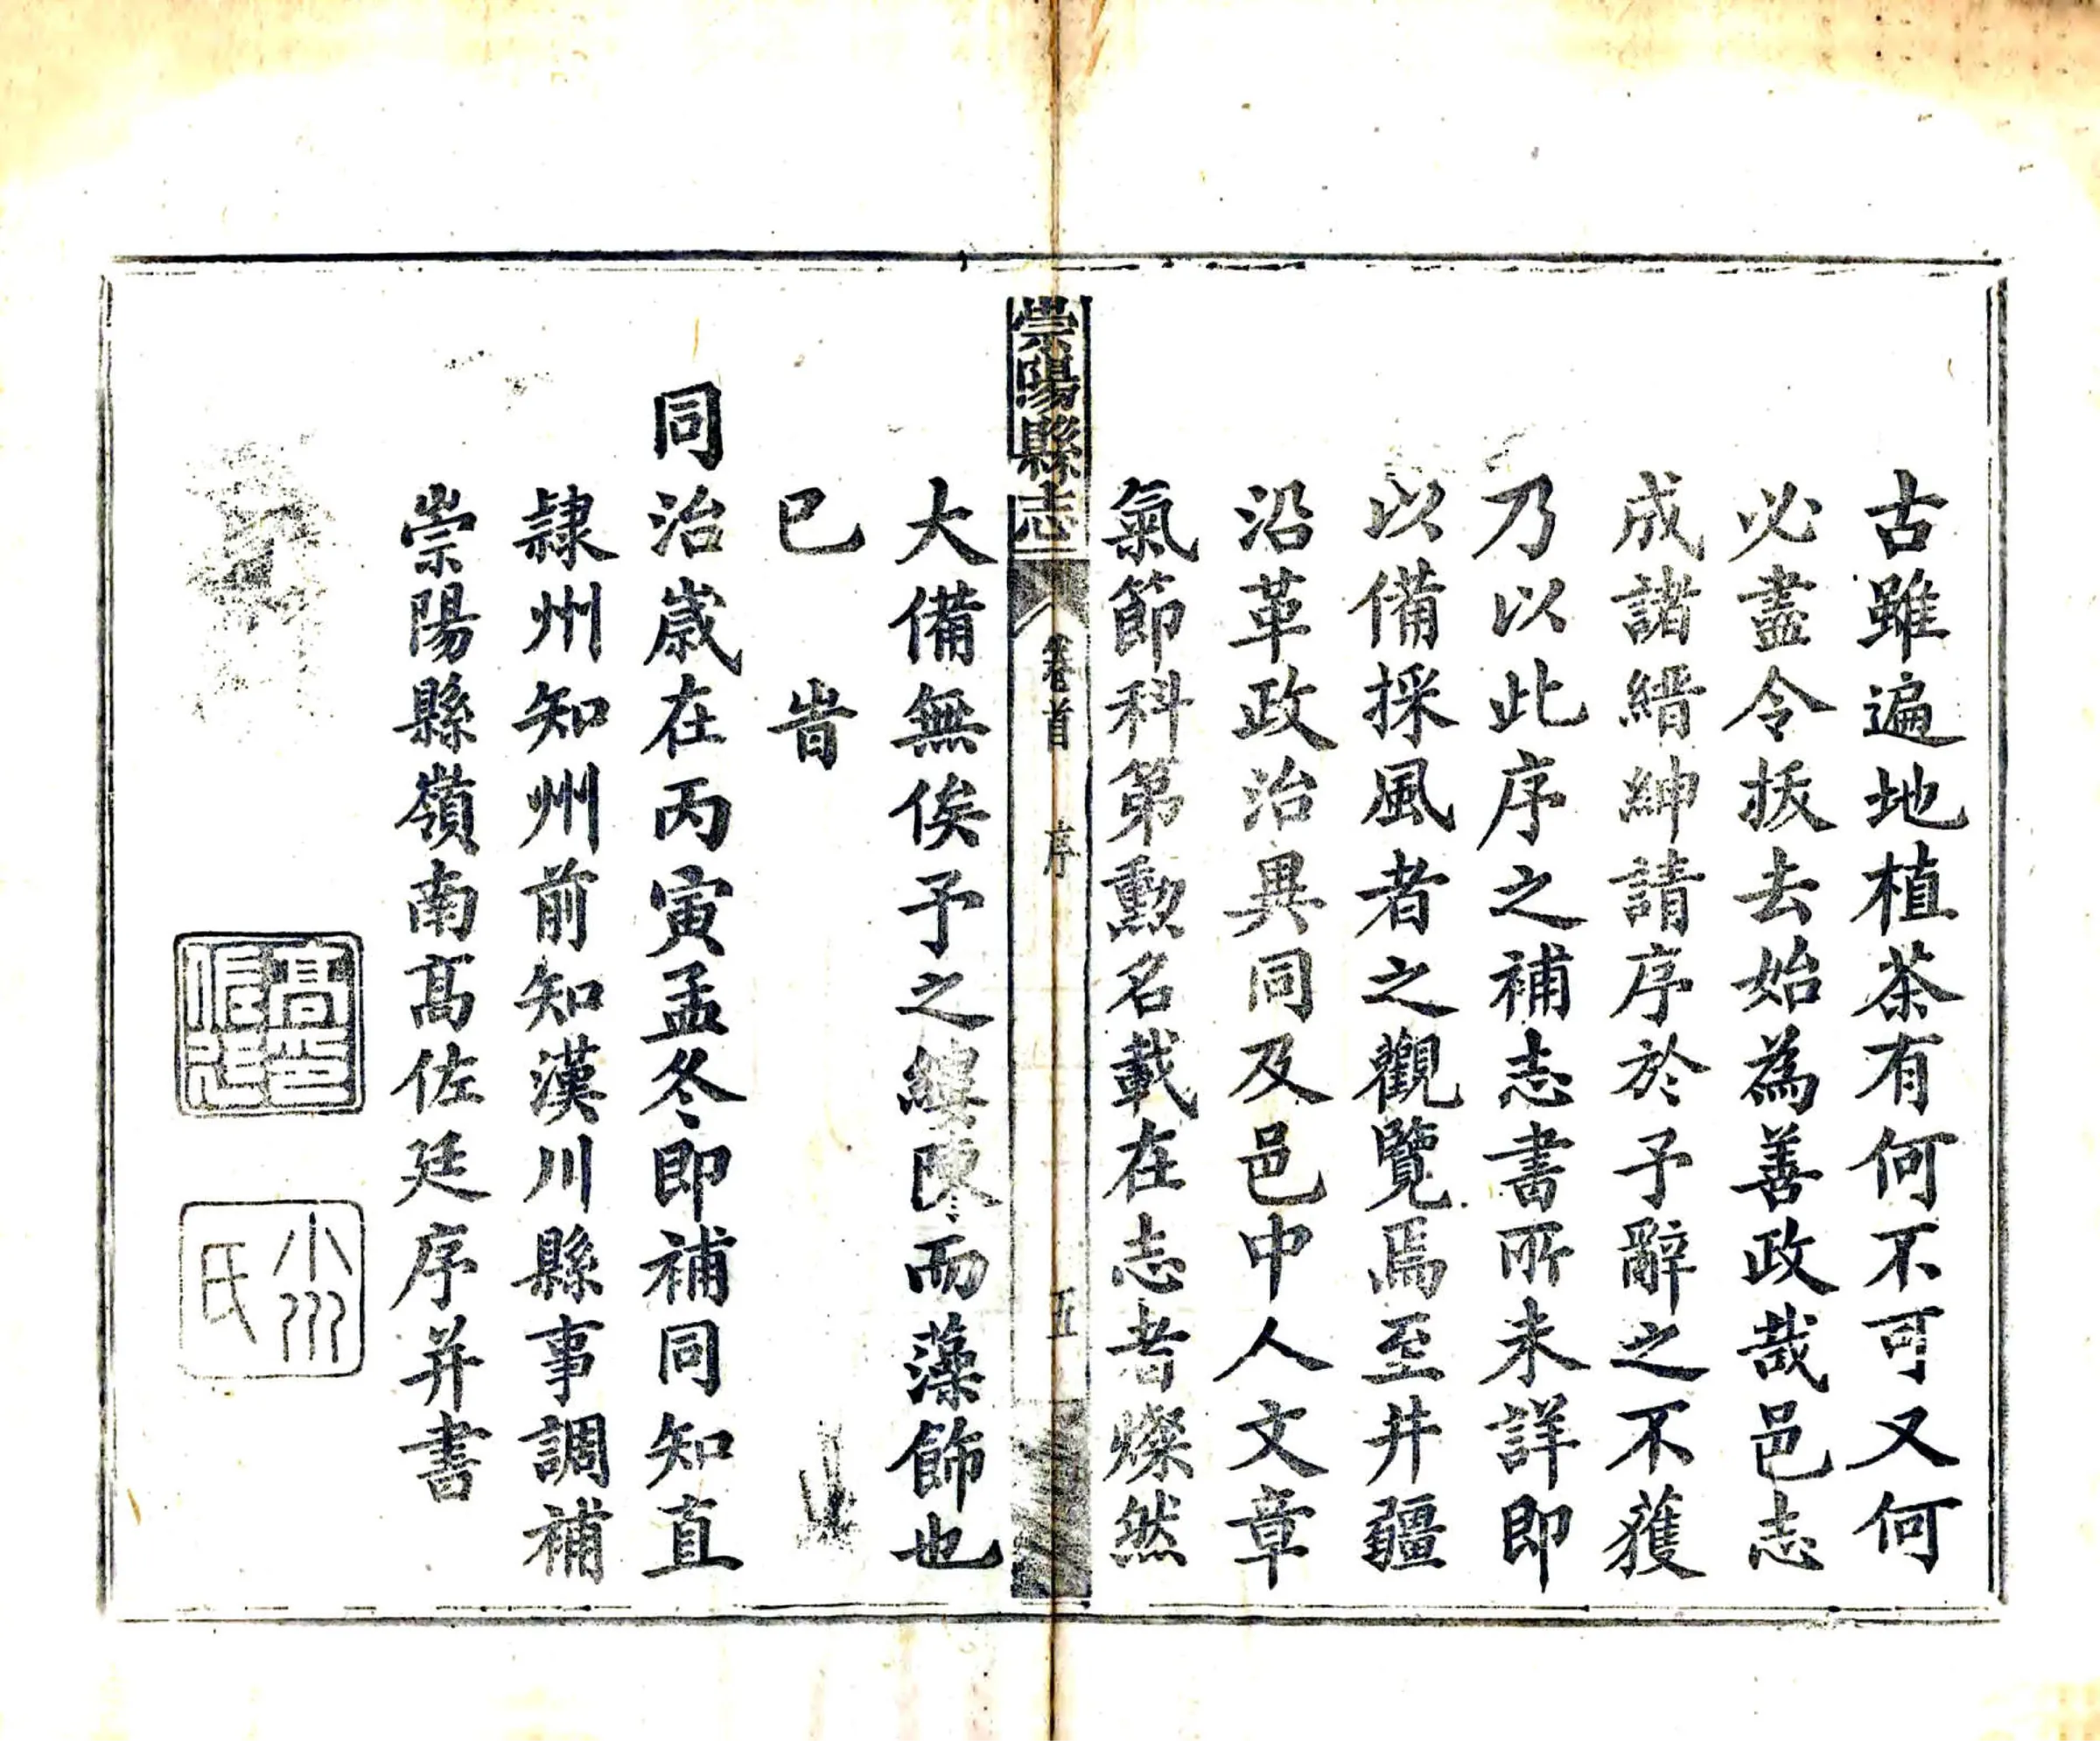 古雖遍地植茶有何不可又何
必盡令拔去始為善政哉邑志
成諸縉紳請序於予辭之不獲
乃以此序之補志書所未詳即
以備採風者之觀覽焉至井疆
沿革政治異同及邑中人文章
氣節科第勲名載在志者燦然
崇陽縣志
卷首
序
五
大備無俟予之縷陳而藻飾也
已旹
同治歲在丙寅孟冬即補同知直
隸州知州前知漢川縣事調補
崇陽縣嶺南髙佐廷序并書
小川
氏